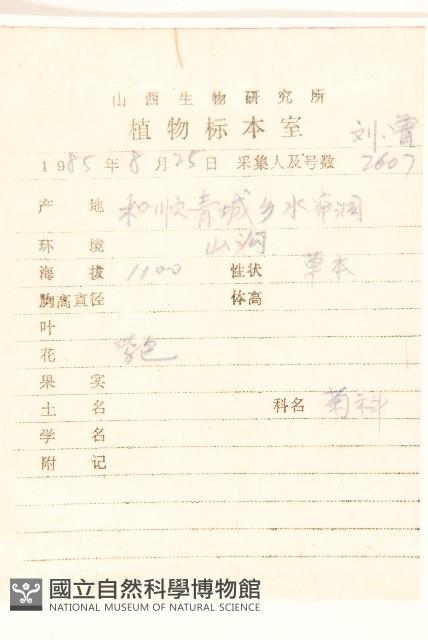 山西生物研究所
植物标本室
刘、曹
1985年8月25日 采集人及号数 2607
产地 和顺青城乡水帘洞
环境 山沟
海拔 1100 性状 草本
胸高直径 体高
叶
花 紫色
果实
土名 科名 菊科
学名
附记
國立自然科學博物館
NATIONAL MUSEUM OF NATURAL SCIENCE